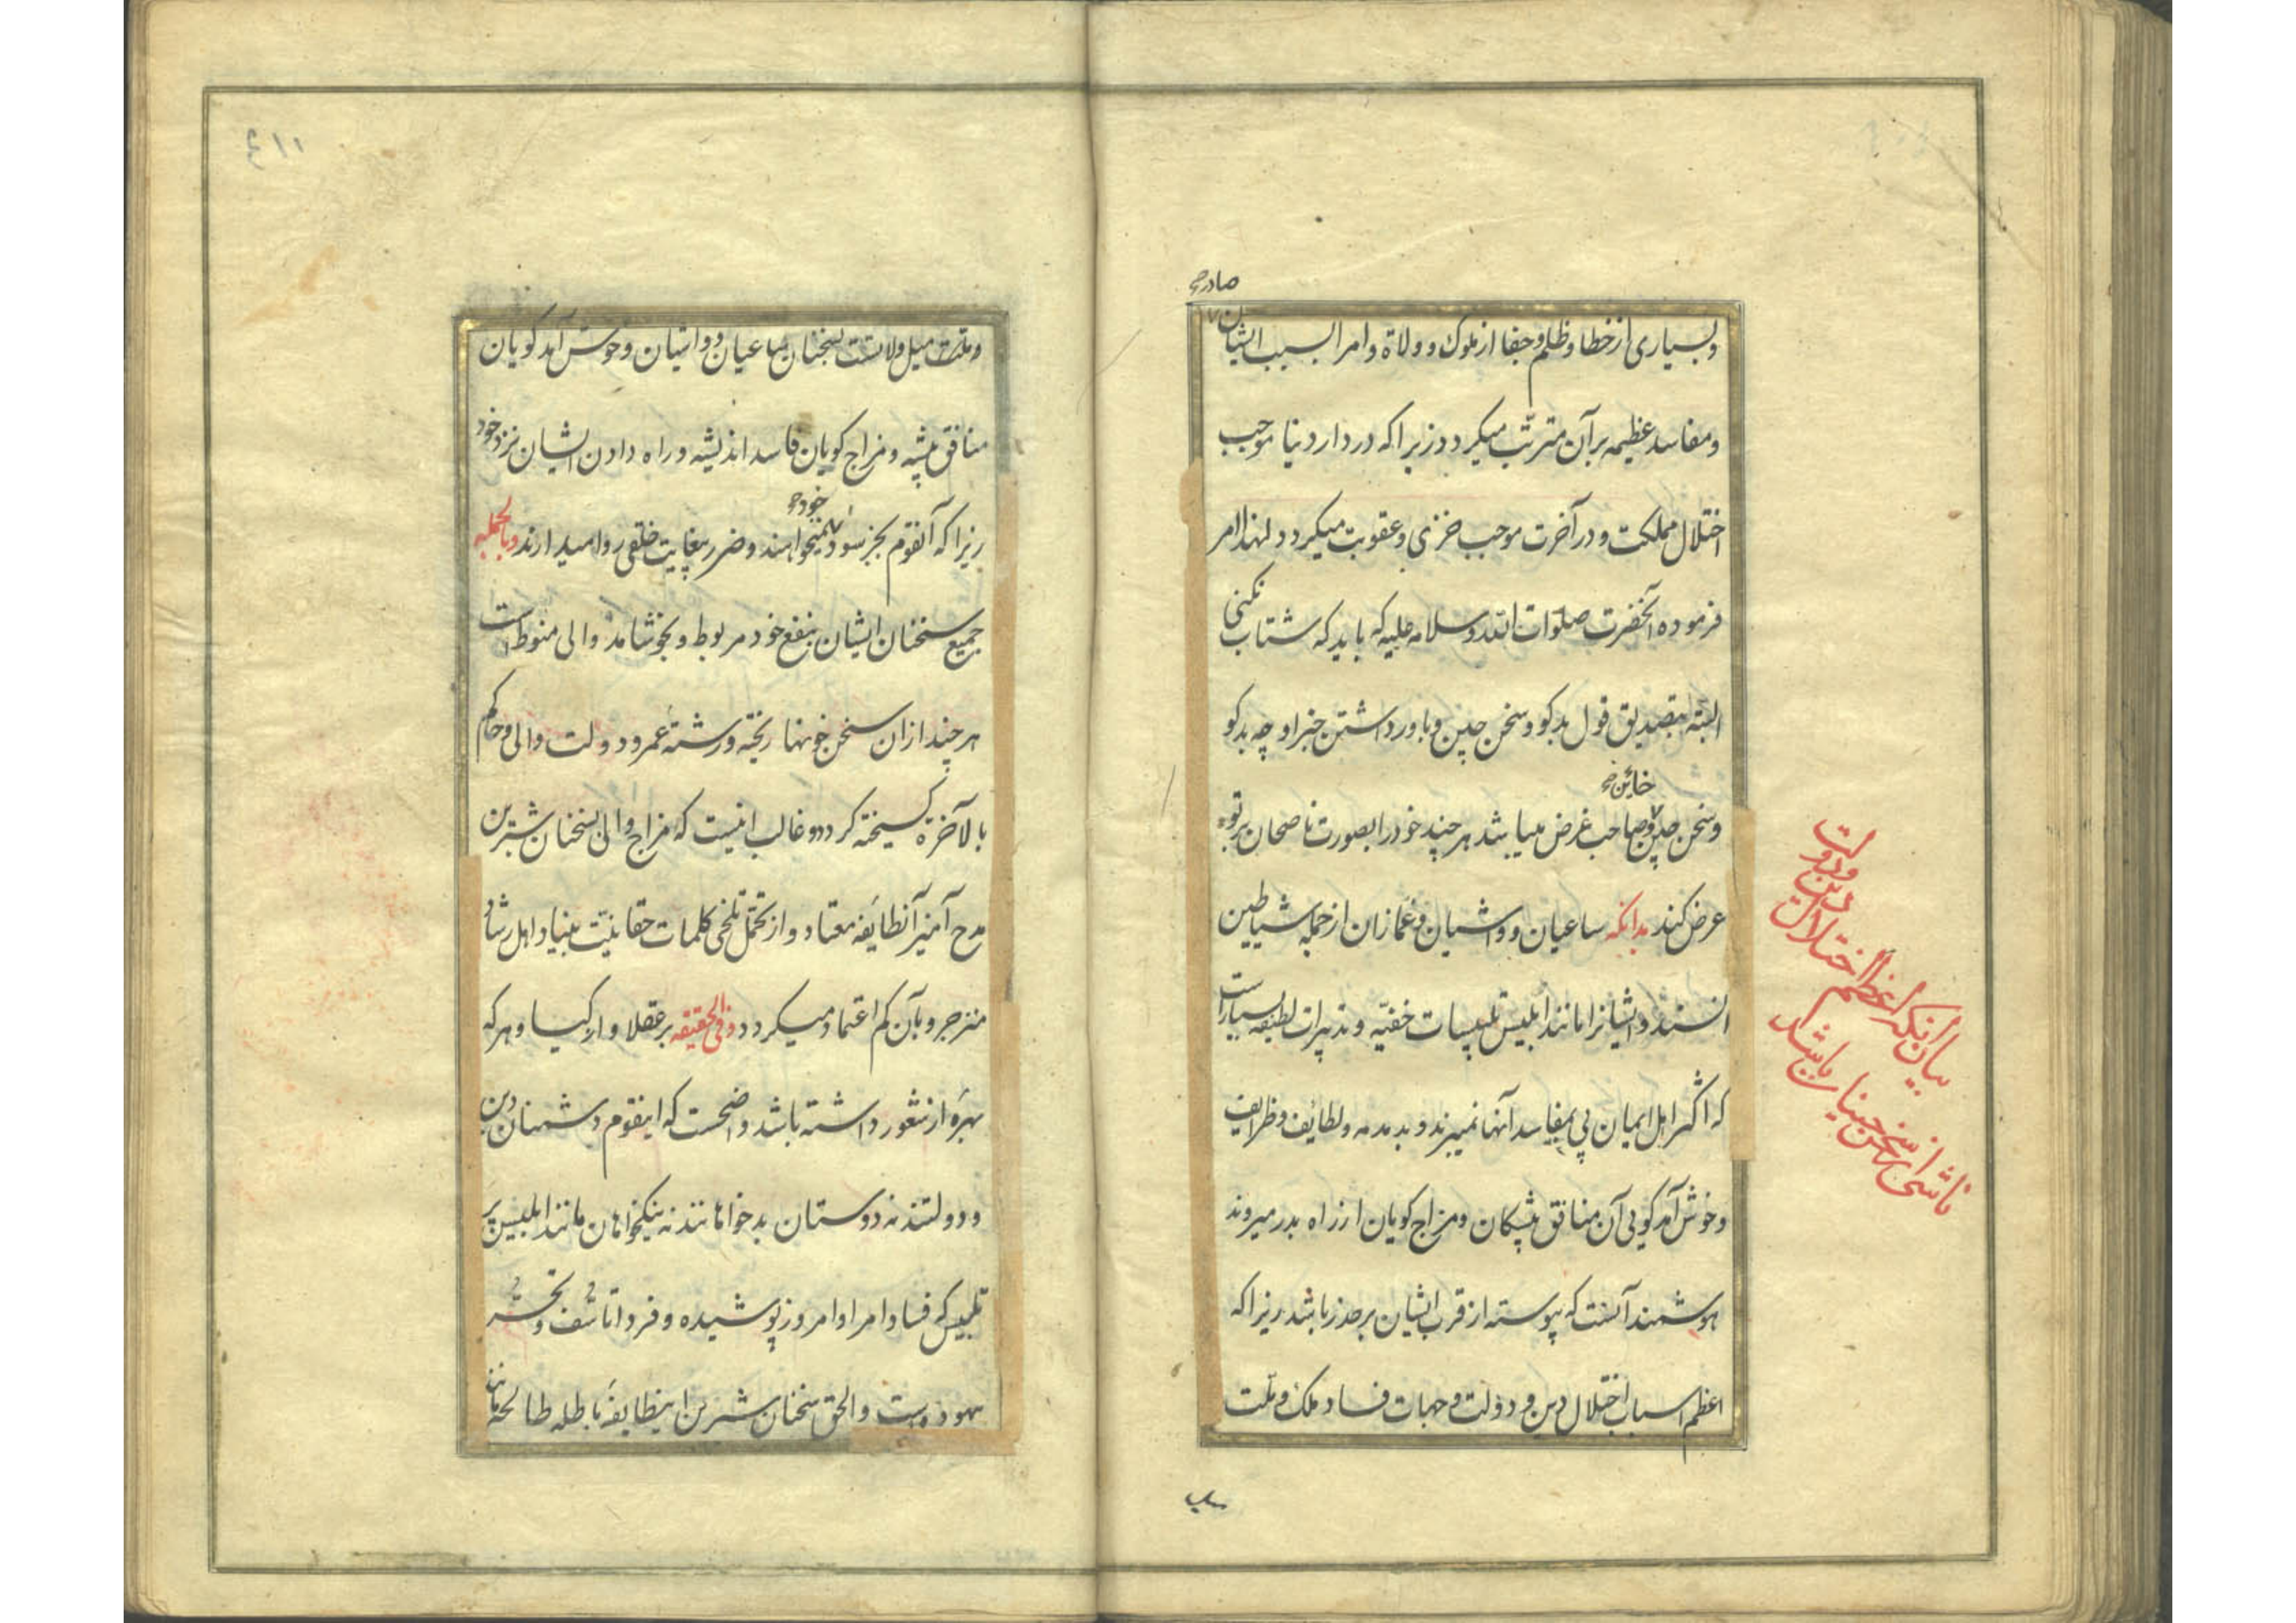 صادر صح
و بسیاری از خطا و ظلم و جفا از ملوک و ولاة و امرا بسبب ایشان
و مفاسد عظیمه بر آن مترتب میکردد زیرا که در دار دنیا موجب
اختلال مملکت و در آخرت موجب خزی و عقوبت میکردد لهذا امر
فرموده آنحضرت صلوات الله و سلامه علیه که باید که شتاب نکنی
البته بتصدیق قول بدکو و سخن چین و باور داشتن خبر او چه بدکو
خائن صح
و سخن چین و صاحب غرض میباشد هر چند خود را بصورت ناصحان بر تو
عرض کند بدانکه ساعیان و واشیان و غمازان از جمله شیاطین
انسند و ایشانرا مانند ابلیس تلبیسات خفیّه و تدبیرات لطیفه بسیار است
که اکثر اهل ایمان پی بمفاسد آنها نمیبرند و بدمدمه و لطایف و ظرایف
و خوش آمد کویی آن منافق پیشکان و مزاج کویان از راه بدر میروند
هوشمند آنست که پیوسته از قرب ایشان بر حذر باشد زیرا که
اعظم اسباب اختلال دین و دولت و جهات فساد ملک و ملّت
بیان آنکه اعظم اختلال دین و دولت
ناشی از سخن چینان باشد
۴۱۱
و ملّت میل ولاتست بسخنان ساعیان و واشیان و خوش آمد کویان
منافق پیشه و مزاج کویان فاسد اندیشه و راه دادن ایشان نزد خود
خود صح
زیرا که آنقوم بجز سود نمیخواهند و ضرر بغایت خلقی روا میدارند و بالجمله
جمیع سخنان ایشان بنفع خود مربوط و بخوشامد والی منوط است
هر چند از ان سخن خونها ریخته و رشتهٔ عمر و دولت والی و حاکم
بالآخره کسیخته کردد و غالب اینست که مزاج والی بسخنان شیرین
مدح آمیز آنطایفه معتاد و از تحمّل تلخی کلمات حقانیّت بنیاد اهل رشاد
منزجر و بآن کم اعتماد میکردد و فی الحقیقه بر عقلا و ازکیا و هر که
بهرهٔ از شعور داشته باشد واضحست که اینقوم دشمنان دین
و دولتند نه دوستان بدخواهانند نه نیکخواهان مانند ابلیس پر
تلبیس که فساد امر او امروز پوشیده و فردا تاسّف و تحسّر
سود و است و الحق سخنان شیرین اینطایفهٔ باطله طالحه مانند